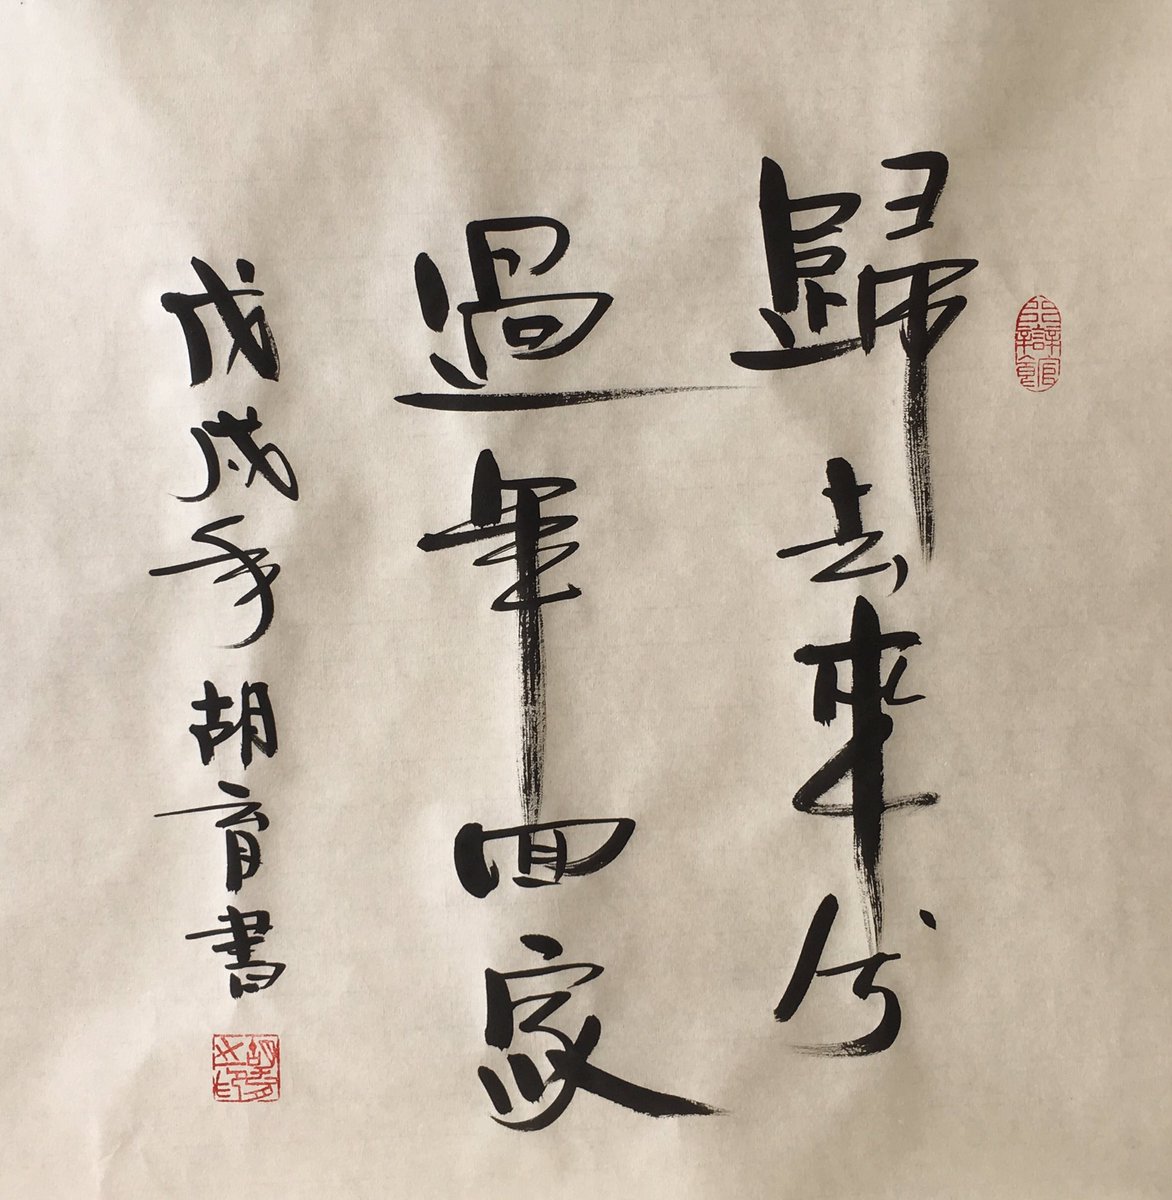 歸去來兮
過年回家
戊戌年胡育書